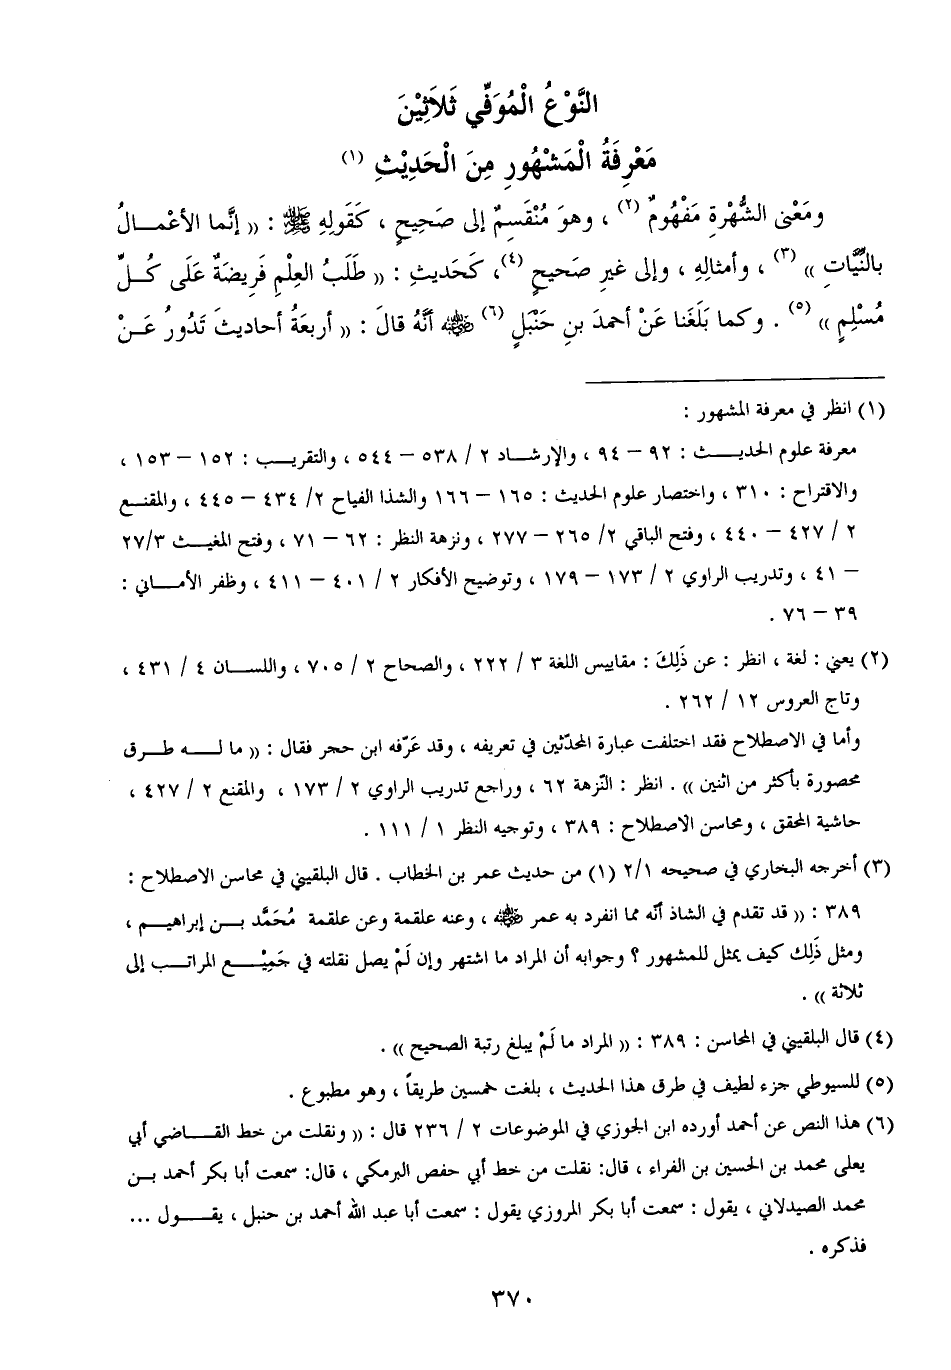 النَّوْعُ الْمُوَفِّي ثَلاَثِيْنَ
مَعْرِفَةُ الْمَشْهُورِ مِنَ الْحَدِيْثِ (١)
ومَعْنى الشُّهْرةِ مَفْهُومٌ (٢) ، وهوَ مُنْقَسِمٌ إلى صَحيحٍ ، كَقَولِهِ ﷺ : (( إنَّما الأعْمـالُ
بالنِّيَّاتِ )) (٣) ، وأمثالِهِ ، وإلى غيرِ صَحيحٍ (٤)، كَحَديثِ : (( طَلَبُ العِلْمِ فَريضَةٌ عَلَى كُـلِّ
مُسْلِمٍ )) (٥) . وكما بَلَغَنا عَنْ أحمدَ بنِ حَنْبَلٍ (٦) ﷺ أنَّهُ قالَ : (( أربعَةُ أحاديثَ تَدُورُ عَـنْ
(١) انظر في معرفة المشهور :
معرفة علوم الحديـث : ٩٢ – ٩٤ ، والإرشـاد ٢ / ٥٣٨ – ٥٤٤ ، والتقريـب : ١٥٢ – ١٥٣ ،
والاقتراح : ٣١٠ ، واختصار علوم الحديث : ١٦٥ – ١٦٦ والشذا الفياح ٢/ ٤٣٤ – ٤٤٥ ، والمقنـع
٢ / ٤٢٧ – ٤٤٠ ، وفتح الباقي ٢/ ٢٦٥ – ٢٧٧ ، ونزهة النظر : ٦٢ – ٧١ ، وفتح المغيـث ٢٧/٣
– ٤١ ، وتدريب الراوي ٢ / ١٧٣ – ١٧٩ ، وتوضيح الأفكار ٢ / ٤٠١ – ٤١١ ، وظفر الأمـاني :
٣٩ – ٧٦ .
(٢) يعني : لغة ، انظر : عن ذَلِكَ : مقاييس اللغة ٣ / ٢٢٢ ، والصحاح ٢ / ٧٠٥ ، واللسـان ٤ / ٤٣١ ،
وتاج العروس ١٢ / ٢٦٢ .
وأما في الاصطلاح فقد اختلفت عبارة المحدّثين في تعريفه ، وقد عَرّفه ابن حجر فقال : (( ما لـه طـرق
محصورة بأكثر من اثنين )) . انظر : النّزهة ٦٢ ، وراجع تدريب الراوي ٢ / ١٧٣ ، والمقنع ٢ / ٤٢٧ ،
حاشية المحقق ، ومحاسن الاصطلاح : ٣٨٩ ، وتوجيه النظر ١ / ١١١ .
(٣) أخرجه البخاري في صحيحه ٢/١ (١) من حديث عمر بن الخطاب . قال البلقيني في محاسن الاصطلاح :
٣٨٩ : (( قد تقدم في الشاذ أنّه مما انفرد به عمر ﷺ ، وعنه علقمة وعن علقمة مُحَمَّد بـن إبراهيـم ،
ومثل ذَلِكَ كيف يمثل للمشهور ؟ وجوابه أن المراد ما اشتهر وإن لَمْ يصل نقلته في جَمِيْـع المراتـب إلى
ثلاثة )) .
(٤) قال البلقيني في المحاسن : ٣٨٩ : (( المراد ما لَمْ يبلغ رتبة الصحيح )) .
(٥) للسيوطي جزء لطيف في طرق هذا الحديث ، بلغت خمسين طريقاً ، وهو مطبوع .
(٦) هذا النص عن أحمد أورده ابن الجوزي في الموضوعات ٢ / ٢٣٦ قال : (( ونقلت من خط القـاضي أبي
يعلى محمد بن الحسين بن الفراء ، قال: نقلت من خط أبي حفص البرمكي ، قال: سمعت أبا بكر أحمد بـن
محمد الصيدلاني ، يقول : سمعت أبا بكر المروزي يقول : سمعت أبا عبد الله أحمد بن حنبل ، يقـول ...
فذكره .
٣٧٠